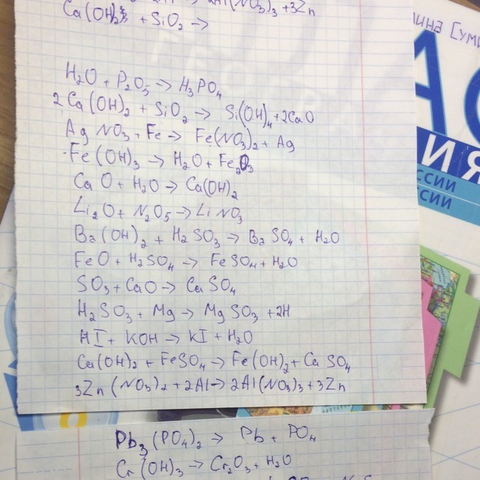 Al(NO₃)₃ + 3Zn
Ca(OH)₂ + SiO₂ →
H₂O + P₂O₅ → H₃PO₄
2Ca(OH)₂ + SiO₂ → Si(OH)₄ + 2CaO
AgNO₃ + Fe → Fe(NO₃)₂ + Ag
Fe(OH)₃ → H₂O + Fe₂O₃
CaO + H₂O → Ca(OH)₂
Li₂O + N₂O₅ → LiNO₃
Ba(OH)₂ + H₂SO₃ → BaSO₄ + H₂O
FeO + H₂SO₄ → FeSO₄ + H₂O
SO₃ + CaO → CaSO₄
H₂SO₃ + Mg → MgSO₃ + 2H
HI + KOH → KI + H₂O
Ca(OH)₂ + FeSO₄ → Fe(OH)₂ + CaSO₄
3Zn(NO₃)₂ + 2Al → 2Al(NO₃)₃ + 3Zn
Pb₃(PO₄)₂ → Pb + PO₄
Cr(OH)₃ → Cr₂O₃ + H₂O
ИЯ
ССИИ
ССИИ